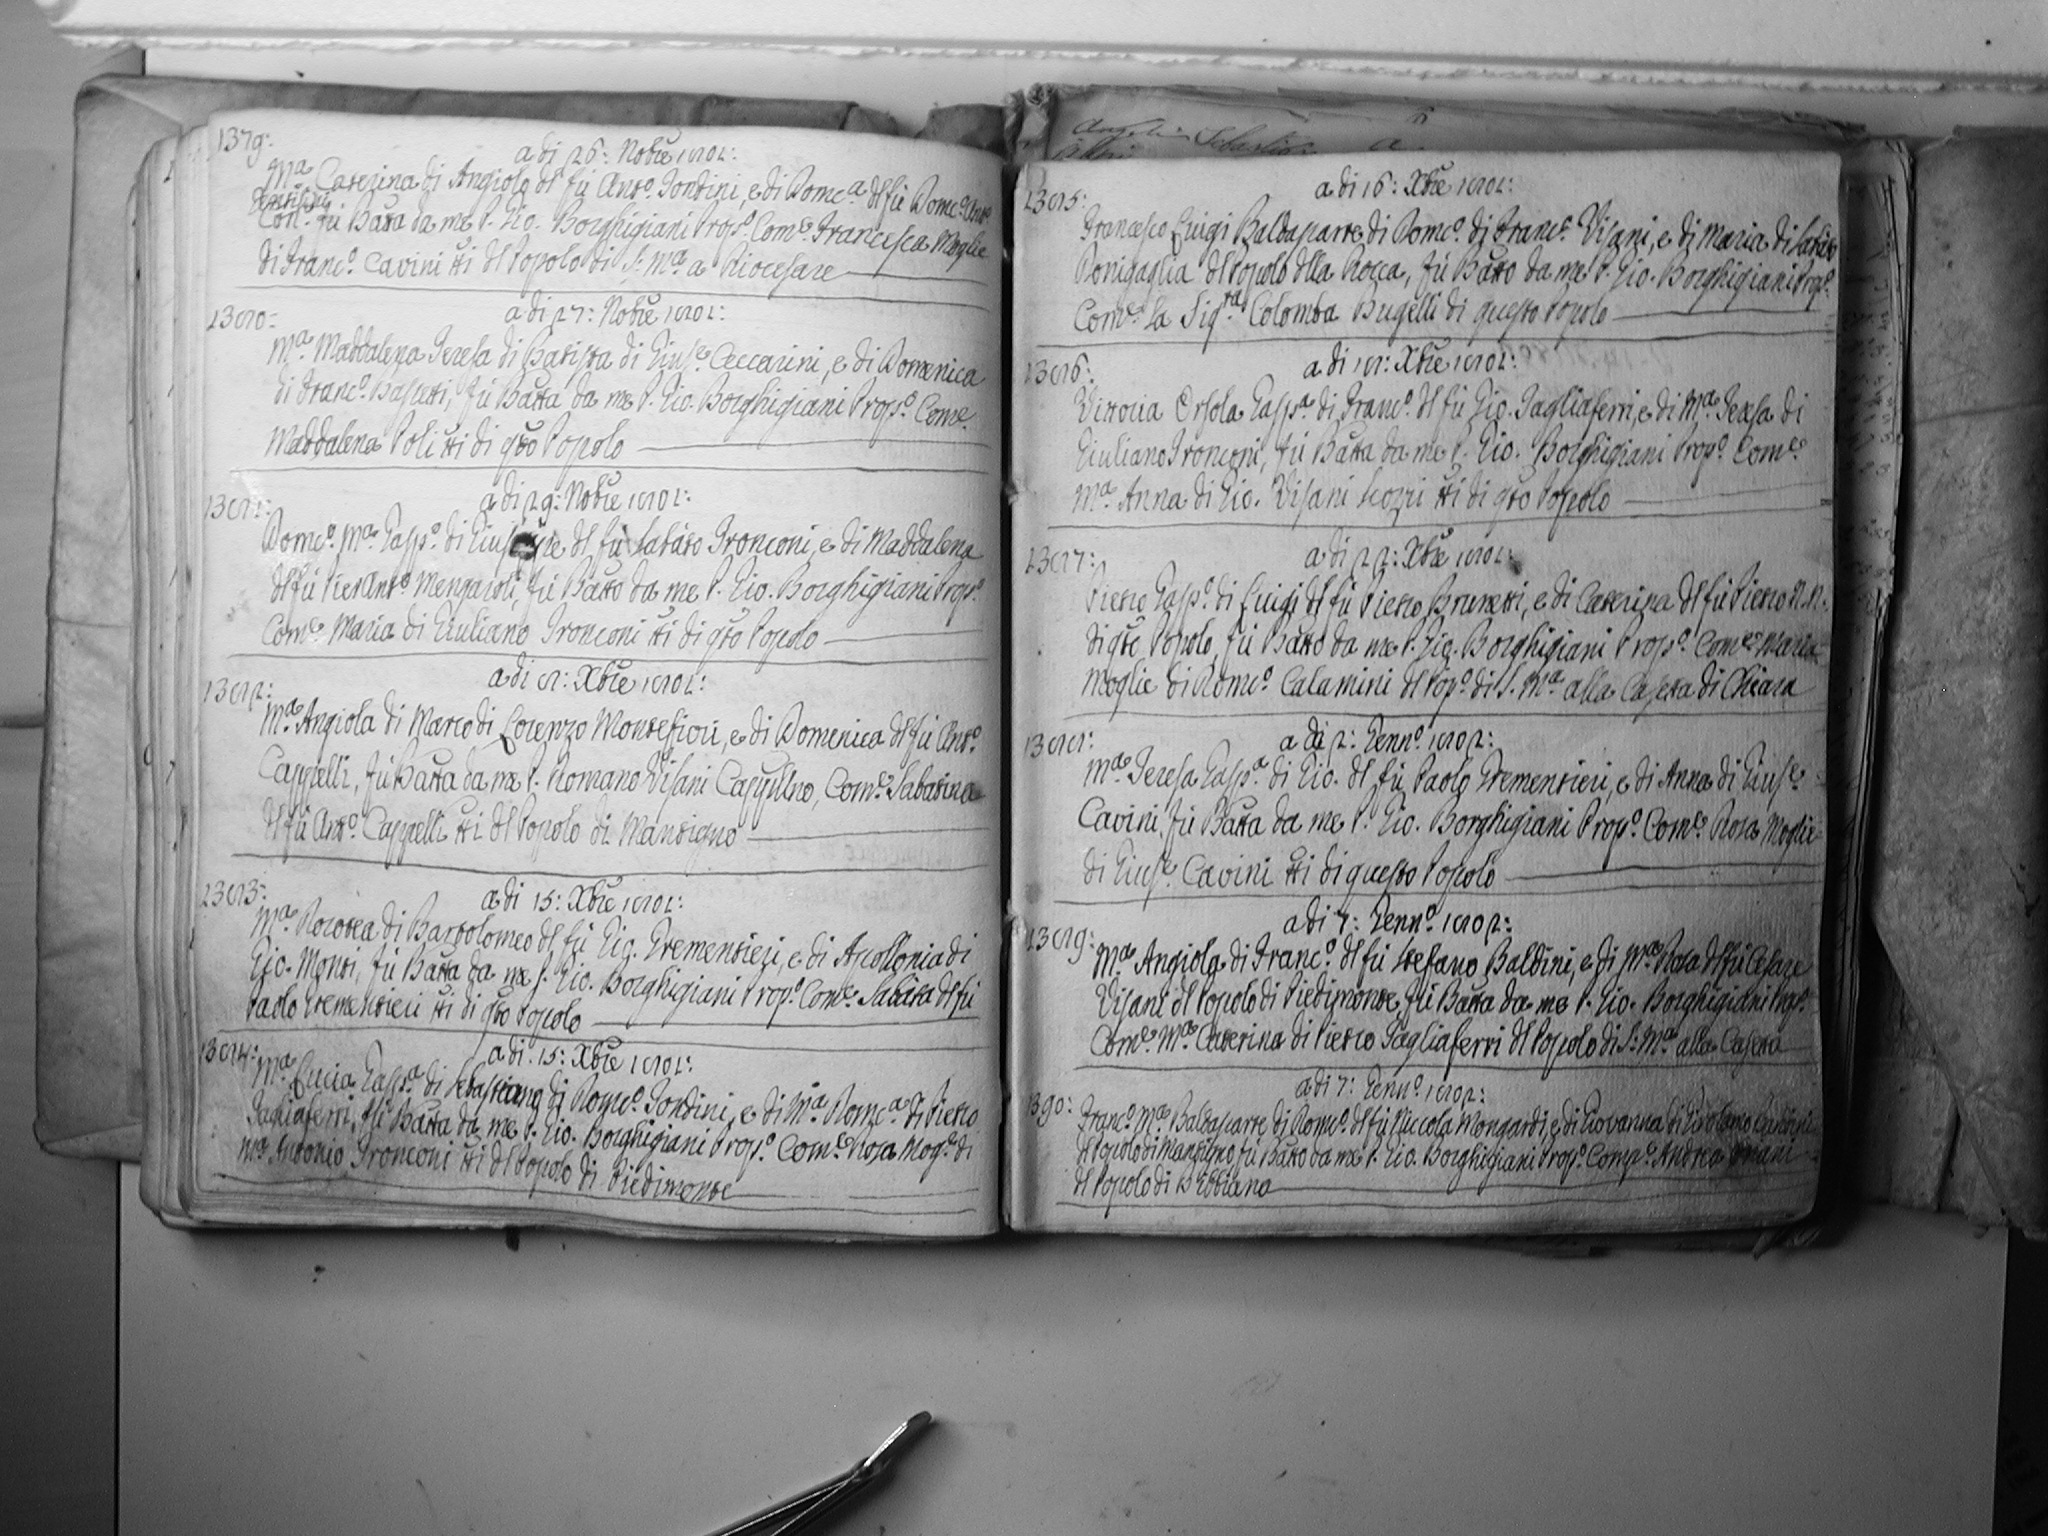 1379:
a di 26: Nobre 1801:
Mª Caterina di Angiolo dl fù Antº Tondini, e di Domcª dl fù Domcº Antº
Conti fù Batta da me P. Gio. Borghigiani Propº Come Francesca Moglie
di Francº Cavini tti dl Popolo di S: Mª a Riocesare
1380:
a di 27: Nobre 1801:
Mª Maddalena Teresa di Batista di Giuse Ceccarini, e di Domenica
di Francº Bassetti, fù Batta da me P. Gio. Borghigiani Propº Come
Maddalena Poli tti di qsto Popolo
1381:
a di 29: Nobre 1801:
Domcº Mª Gaspº di Giuseppe dl fù Sabato Tronconi, e di Maddalena
dl fù Pier Antº Mengaroli, fù Batto da me P. Gio. Borghigiani Propº
Come Maria di Giuliano Tronconi tti di qsto Popolo
1382:
a di 8: Xbre 1801:
Mª Angiola di Marco di Lorenzo Montefiori, e di Domenica dl fù Antº
Cappelli, fù Batta da me P. Romano Visani Cappllno, Come Sabatina
dl fù Antº Cappelli tti dl Popolo di Mantigno
1383:
a di 15: Xbre 1801:
Mª Dorotea di Bartolomeo dl fù Gio. Grementieri, e di Apollonia di
Gio. Monti, fù Batta da me P. Gio. Borghigiani Propº Come Sabata dl fù
Paolo Grementieri tti di qsto Popolo
1384:
a di 15: Xbre 1801:
Mª Lucia Gaspª di Sebastiano di Domcº Tondini, e di Mª Domcª di Pietro
Tagliaferri, fù Batta da me P. Gio. Borghigiani Propº Come Rosa Moge di
Mª Antonio Tronconi tti dl Popolo di Piedimonte
1385:
a di 16: Xbre 1801:
Francesco Luigi Baldasarre di Domcº di Francº Visani, e di Maria di Sabato
Donigaglia dl Popolo dlla Rocca, fù Batto da me P. Gio. Borghigiani Propº
Come La Sigra Colomba Bugelli di questo Popolo
1386:
a di 18: Xbre 1801:
Vittoria Orsola Gaspª di Francº dl fù Gio. Tagliaferri, e di Mª Teresa di
Giuliano Tronconi, fù Batta da me P. Gio. Borghigiani Propº Come
Mª Anna di Gio. Visani Scozzi tti di qsto Popolo
1387:
a di 22: Xbre 1801:
Pietro Gaspº di Luigi dl fù Pietro Brunetti, e di Caterina dl fù Pietro N.N.
di qsto Popolo, fù Batto da me P. Gio. Borghigiani Propº Come Maria
Moglie di Domcº Calamini dl Popº di S. Mª alla Casetta di Chiara
1388:
a di 2: Gennº 1802:
Mª Teresa Gaspª di Gio. dl fù Paolo Grementieri, e di Anna di Giuse
Cavini, fù Batta da me P. Gio. Borghigiani Propº Come Rosa Moglie
di Giuse Cavini tti di questo Popolo
1389:
a di 7: Gennº 1802:
Mª Angiola di Francº dl fù Stefano Baldini, e di Mª Rosa dl fù Cesare
Visani dl Popolo di Piedimonte, fù Batta da me P. Gio. Borghigiani Propº
Come Mª Caterina di Pietro Tagliaferri dl Popolo di S: Mª alla Casetta
1390:
a di 7: Gennº 1802:
Francº Mª Baldasarre di Domcº dl fù Niccola Mongardi, e di Giovanna di Girolamo
dl Popolo di Mantigno fù Batto da me P. Gio. Borghigiani Propº Compe Andrea
dl Popolo di Bibbiana